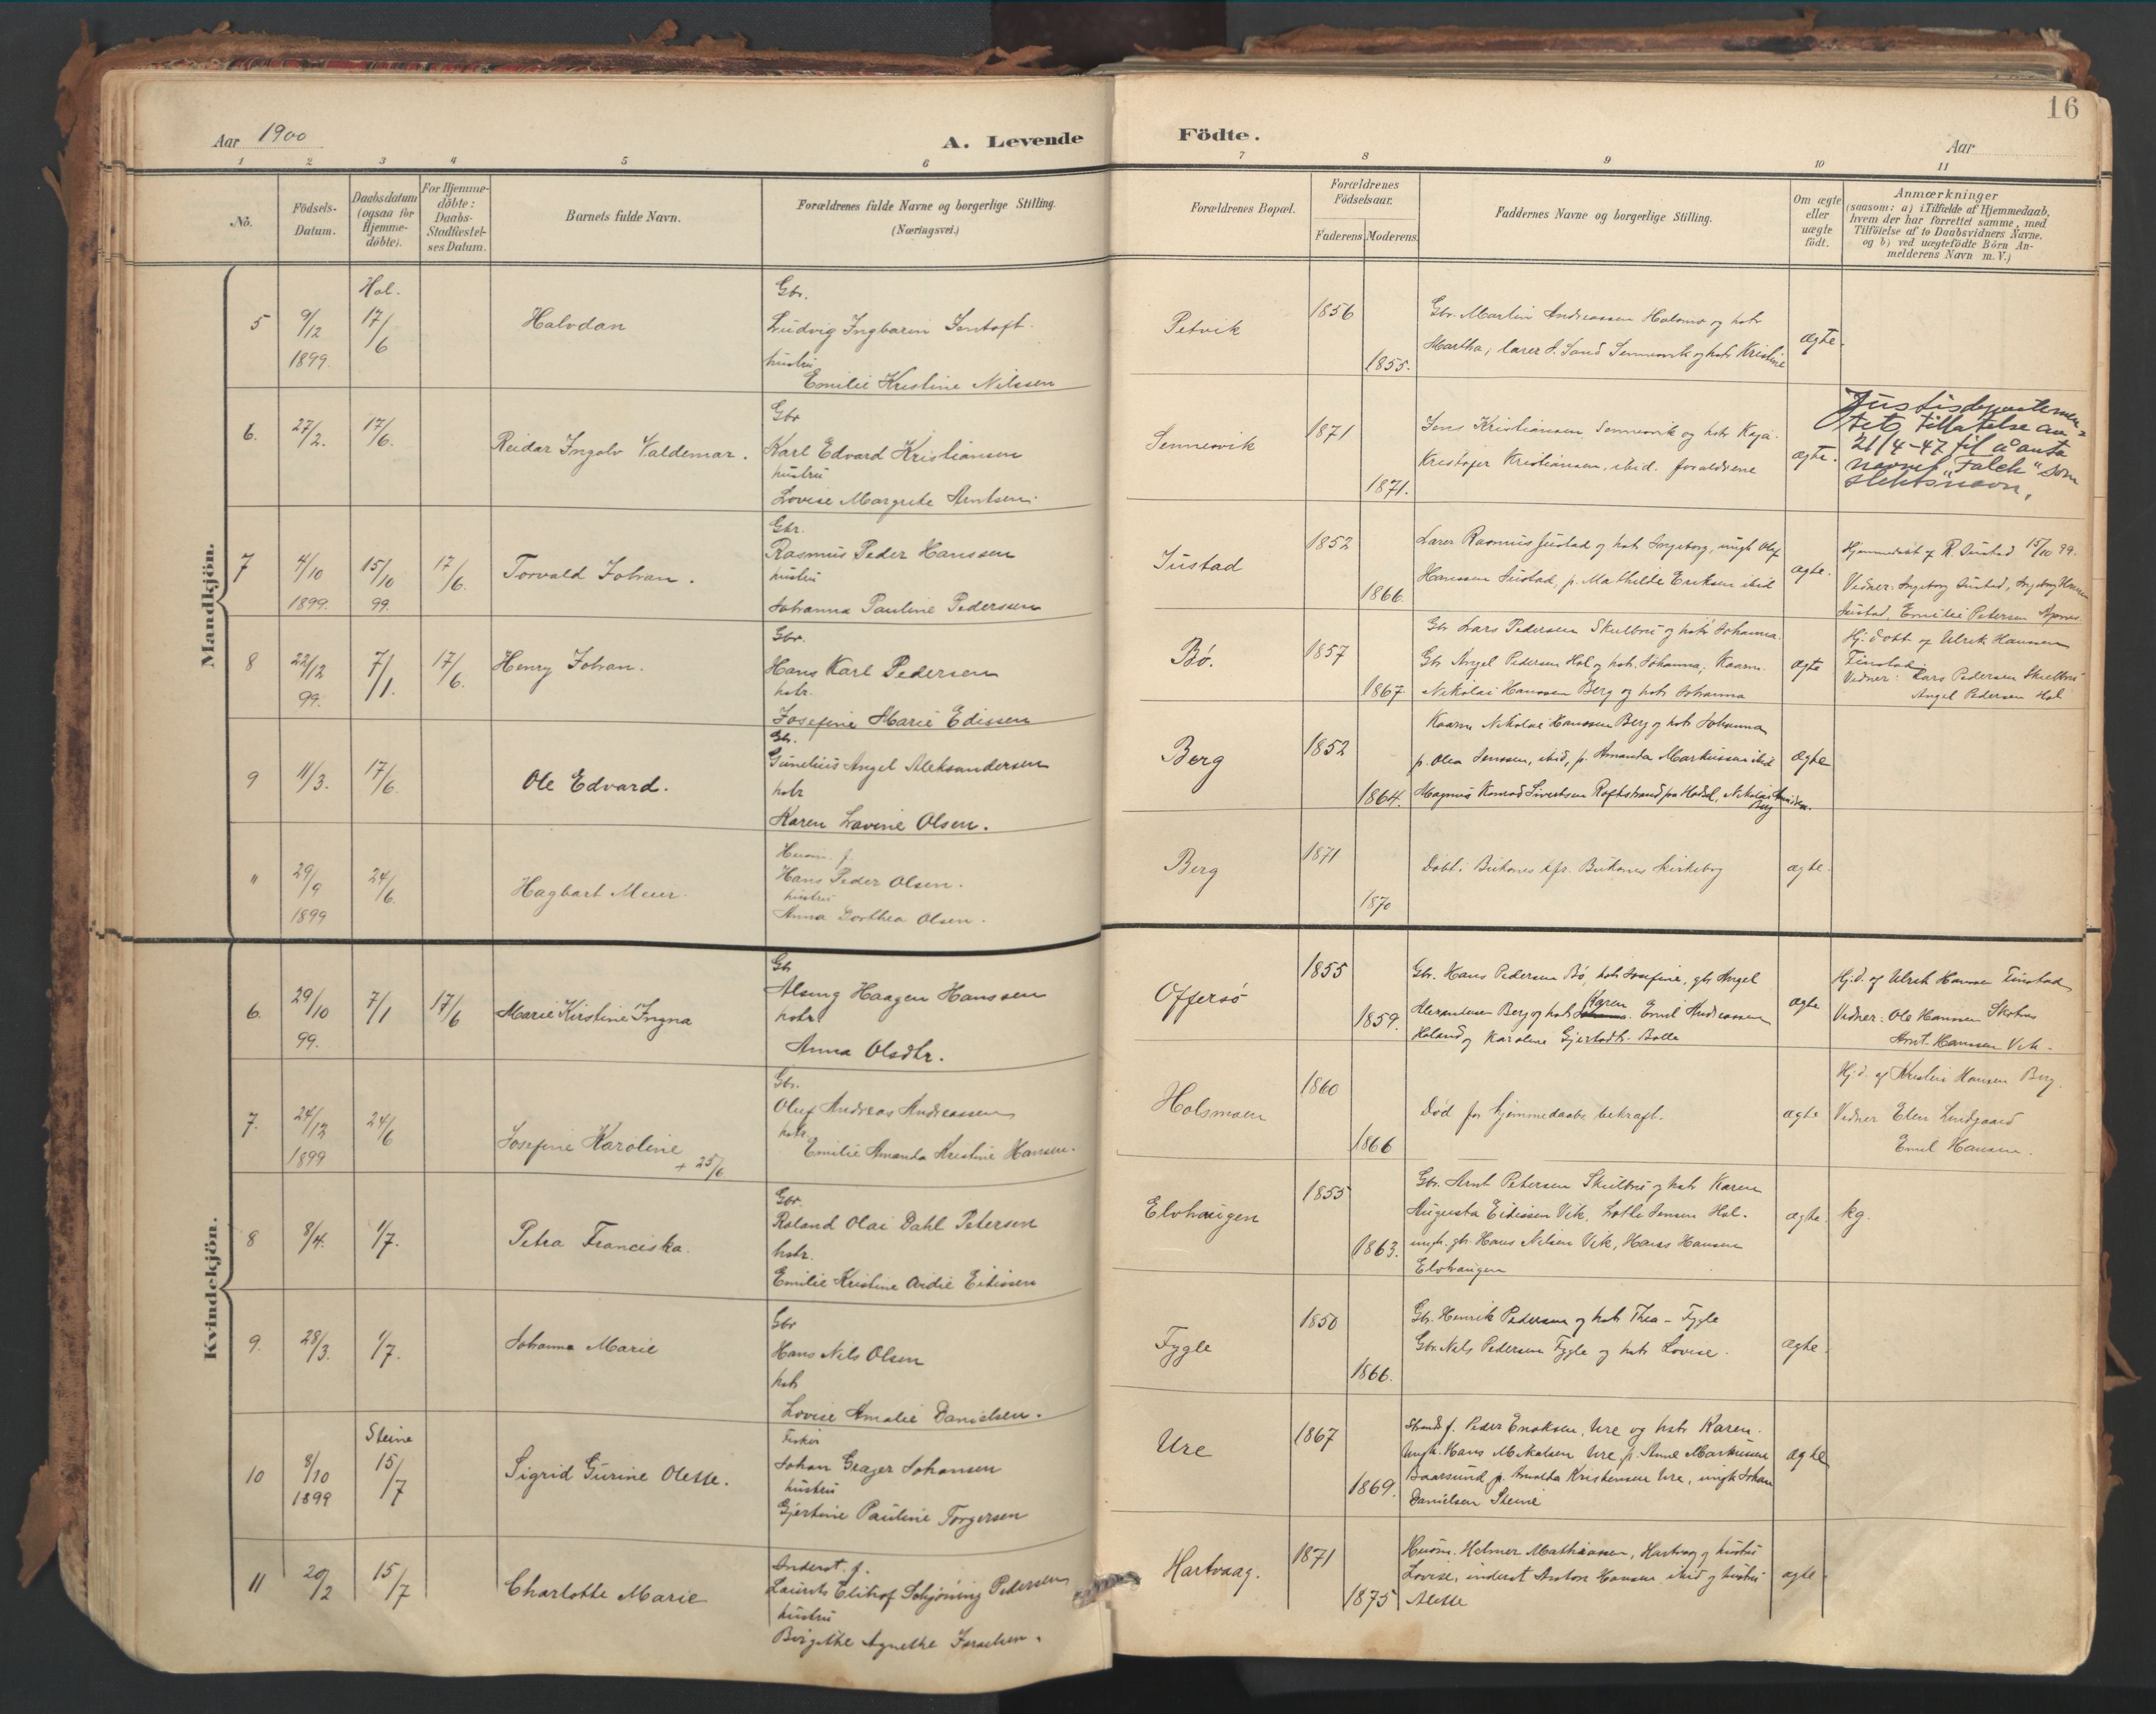 Aar 1900
A. Levende
1 2 3 4 5 6
No.
Födsels-
Datum.
Daabsdatum
(ogsaa for
Hjemme-
döbte).
For Hjemme-
döbte:
Daabs-
Stadfæstel-
ses Datum.
Barnets fulde Navn.
Forældrenes fulde Navne og borgerlige Stilling.
(Næringsvei.)
Mandkjön.
Hol.
5 9/12 1899. 17/6 Halvdan
Gbr.
Ludvig Ingbarin
hustru
Emilie Kristine Nilssen
6. 27/2. 17/6. Reidar Ingolv Valdemar.
Gbr
Karl Edvard Kristiansen
hustru
Lovise Margrete Arntsen.
7 4/10 1899. 15/10 99. 17/6. Torvald Johan.
Gbr.
Rasmus Peder Hanssen
hustru
Johanna Pauline Pedersen
8 22/12 99. 7/1. 17/6. Henry Johan.
Gbr.
Hans Karl Pedersen
hstr.
Josefine Marie Edissen
9 11/3. 17/6. Ole Edvard.
Gbr.
Gunelius Angel Aleksandersen
hstr
Karen Lavine Olsen.
" 29/9 1899 24/6. Hagbart Meier.
Husm. f.
Hans Peder Olsen.
hustru
Anna Dorthea Olsen.
Kvindekjön.
6. 29/10 99. 7/1 17/6 Marie Kirstine Ingna
Gbr
Alsing Haagen Hanssen
hstr.
Anna Olsdtr.
7. 24/12 1899 24/6 Josefine Karoline + 25/6
Gbr.
Oluf Andreas Andreassen
hstr.
Emilie Amanda Kristine Hansen.
8 8/4. 1/7. Petra Franciska.
Gbr.
Roland Olai Dahl Petersen
hstr.
Emilie Kristine Eidissen
9. 28/3. 1/7. Johanna Marie
Gbr
Hans Nils Olsen
hstr
Lovise Amalie Danielsen.
Steine
10 8/10 1899 15/7 Sigrid Gurine Olette.
Fisker
Johan Johansen
hustru
Gjertine Pauline Torgersen
11 20/2 15/7 Charlotte Marie
Inderst. f.
Laurits Elitrof Schjöning Pedersen
hustru
Birgithe Agnethe
16
Födte.
Aar
7 8 9 10 11
Forældrenes Bopæl.
Forældrenes
Födselsaar.
Faderens Moderens
Faddernes Navne og borgerlige Stilling.
Om ægte
eller
uægte
födt.
Anmærkninger
(saasom: a) i Tilfælde af Hjemmedaab,
hvem der har forrettet samme, med
Tilföielse af to Daabsvidners Navne,
og b) ved uægtefödte Börn An-
melderens Navn m. V.)
Petvik 1856 1855.
Gbr. Martin Andreassen Holsmo og hstr
Martha; lærer J. Sand Sennesvik og hstr Kristine
ægte.
Sennesvik 1871 1871.
Jens Kristiansen Sennesvik og hstr Kaja.
Kristofer Kristiansen, ibid. forældrene
ægte.
Justisdepartemen-
tets tillatelse av
21/4-47 til å anta
navnet "Falch" som
slektsnavn.
Justad 1852 1866.
Lærer Rasmus Justad og hstr Ingeborg, ungk Oluf
Hanssen Justad, p. Mathilde Eriksen ibid
ægte.
Hjemmedøbt af R. Justad 15/10 99.
Vidner: Ingeborg Justad, Ingeborg Hansen
Justad, Emilie Petersen
Bø. 1857 1867.
Gbr Lars Pedersen Skulbru og hstr Johanna.
Gbr Angel Pedersen Hol og hstr. Johanna; Kaarm.
Nikolai Hanssen Berg og hstr Johanna
ægte
Hj. døbt af Ulrik Hanssen
Finstad
Vidner: Lars Pedersen Skulbru
Angel Pedersen Hol
Berg 1852 1864.
Kaarm Nikolai Hanssen Berg og hstr Johanna
p. Olea Jenssen, ibid, p. Amanda Markussen ibid
Magnus Konrad Sivertsen Raftstrand fra Hadsel, Nikolai
Berg
ægte
Berg 1871 1870
Døbt i Buksnes cfr. Buksnes kirkebog
ægte.
Offersø 1855 1859.
Gbr. Hans Pedersen Bø, hstr Josefine, gbr Angel
Alexandersen Berg og hstr Karen Emil Andreassen
Holand og Karoline Gjertsdtr. Bolle
ægte
Hj.d. af Ulrik Hanssen Finstad
Vidner: Ole Hanssen
Arnt Hanssen Vik.
Holsmoen 1860 1866
Død før hjemmedaabs bekræft.
ægte
Hj.d. af Kristin Hansen Berg.
Vidner Elen Lindgaard
Emil Hansen.
Elvhaugen 1855 1863.
Gbr. Arnt Petersen Skulbru og hstr Karen
Augusta Eidissen Vik, Lotte Jensen Hol.
ungk. gbr. Hans Nilsen Vik, Hans Hansen
Elvhaugen
ægte.
kg.
Fygle 1850 1866.
Gbr. Henrik Pedersen og hstr Thea – Fygle
Gbr. Nils Pedersen Fygle og hstr Lovise.
ægte.
Ure 1867 1869.
Strands. f. Peder Enoksen, Ure og hstr Karen.
Ungk. Hans Mikalsen Ure, p. Anne Markussen
Baarsund, p. Amalia Kristensen Ure, ungk Johan
Danielsen Steine
ægte
Hartvaag. 1871 1875
Husm. Helmer Mathiassen, Hartvaag og hustru
Lovise, inderst Anton Hansen ibid og hustru
Alette
ægte.